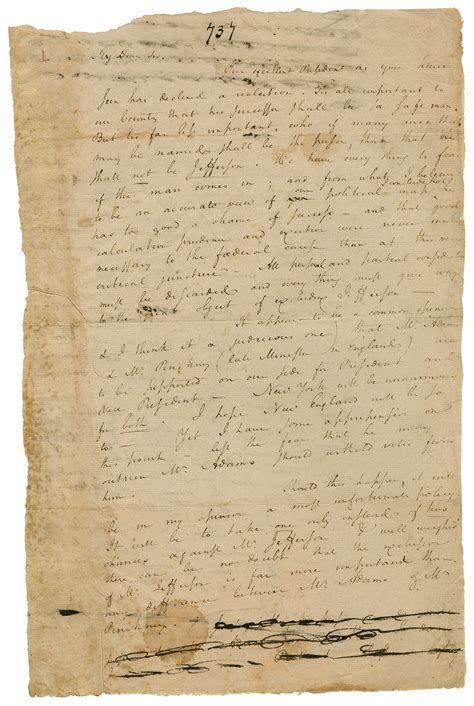 737
My Dear Sir,
Our excellent President as you
Seen has declined a reelection. Tis all important to
our Country that his successor shall be a safe man.
But tis far less important, who of many men that
may be named shall be the person, than that it
shall not be Jefferson. We have every thing to fear
if this man comes in; and from what I believe
to be an accurate view of our political map I
has too good a chance of success and that good
calculation prudence and exertion were never more
necessary to the Fœderal cause than at this very
critical juncture. All personal and partial considerations
must be discarded and every thing must give way
to the great object of excluding Jefferson
It appears to be a common opinion
& I think it a judicious one that Mr. Adams
& Mr. Pinckney (late Minister to England) are
to be supported on our side for President and
Vice President — New York will be unanimous
for both. I hope New England will be so
too. Yet I have some apprehensions on
this point lest the fear that he may
outrun Mr. Adams should withhold votes from
him.
Should this happen, it will
be in my opinion a most unfortunate policy
It will be to take one only instead of two
chances against Mr. Jefferson & well weighed
there can be no doubt that the exclusion
of Mr. Jefferson is far more important than
any difference between Mr. Adams & Mr.
Pinckney.